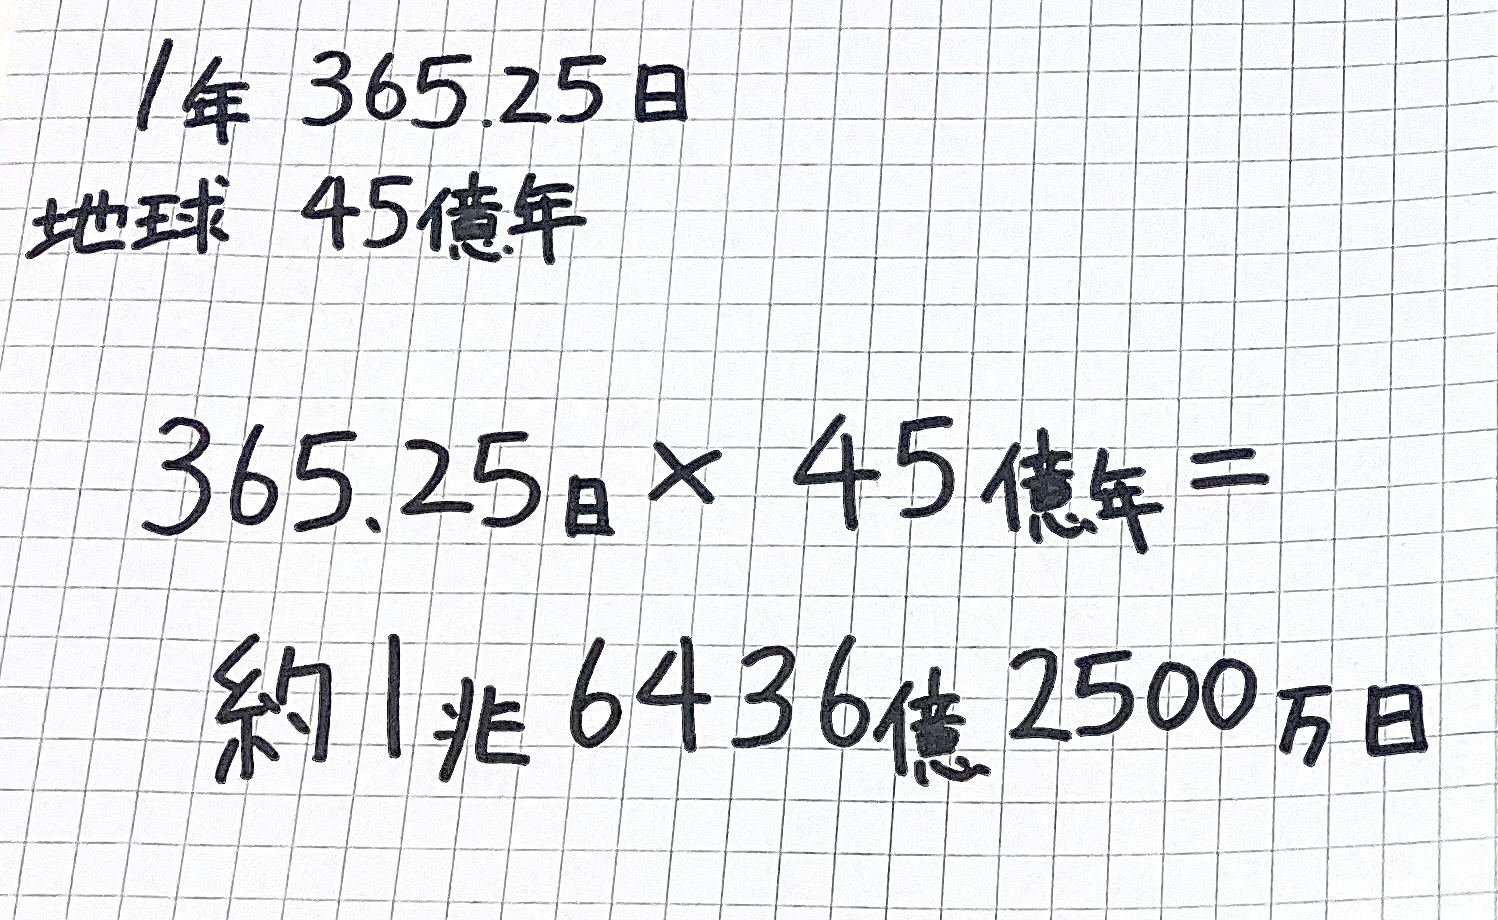 1年 365.25日
地球 45億年
365.25日×45億年=
約1兆6436億2500万日